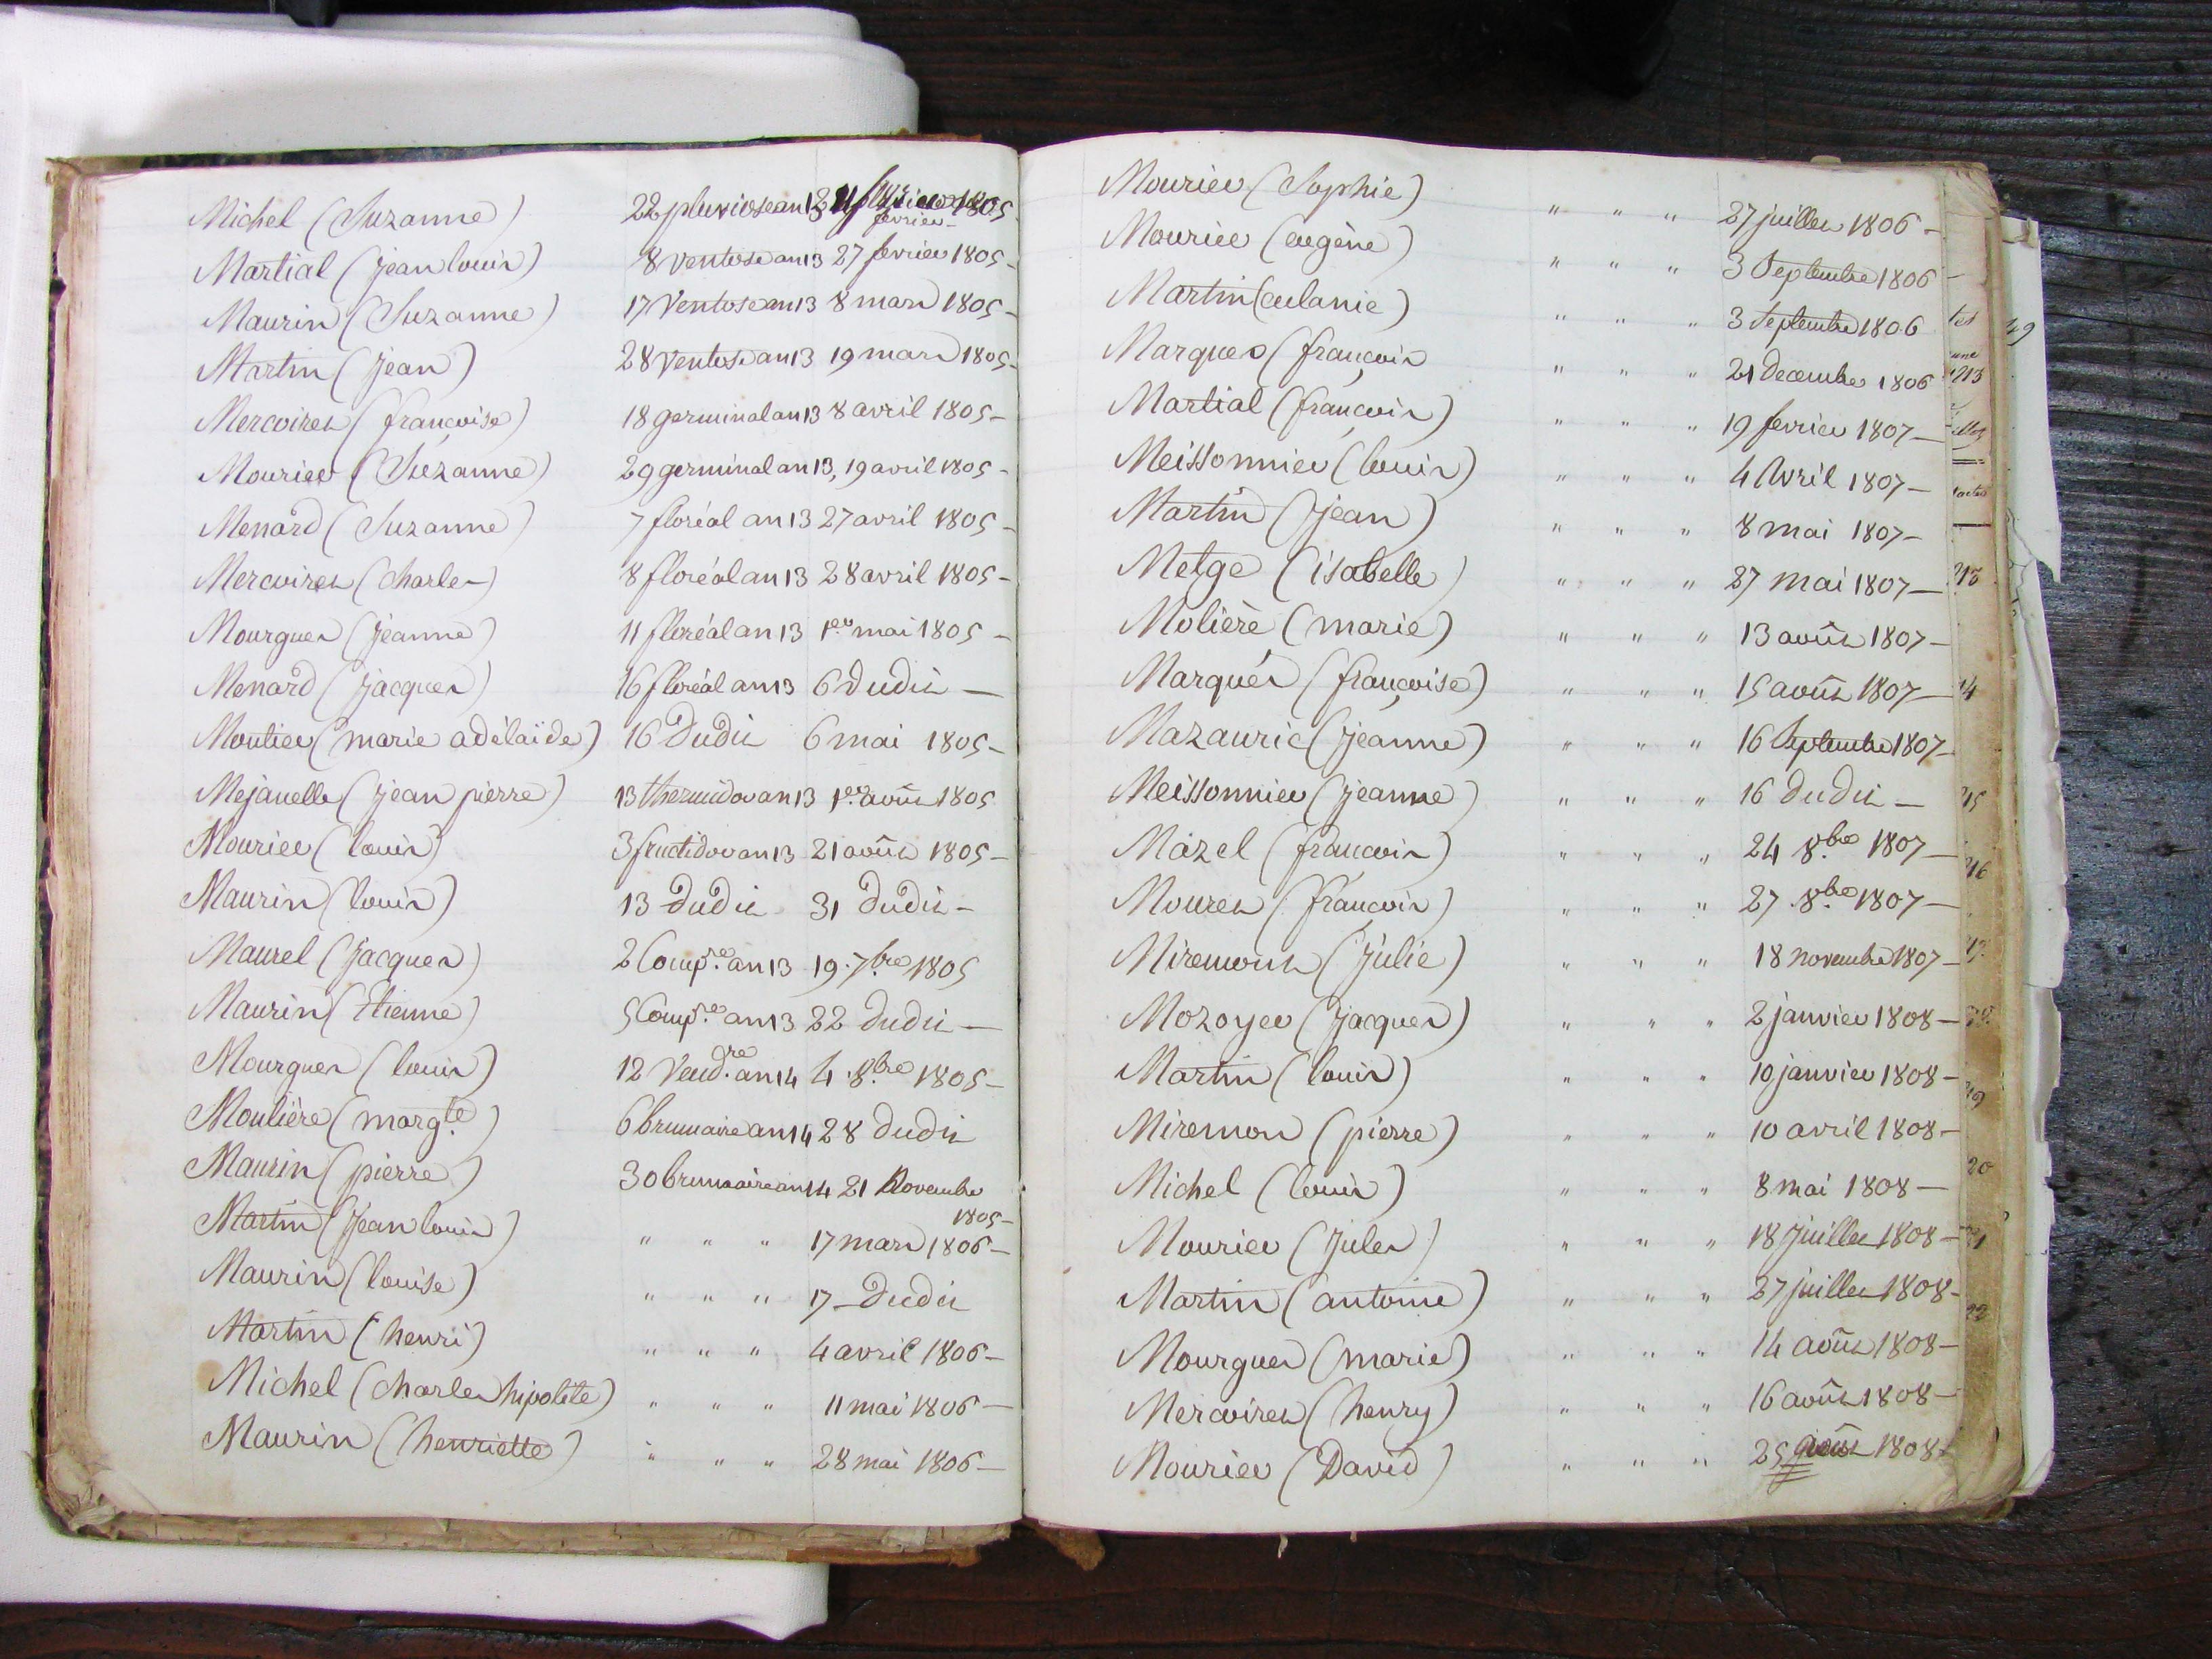 Michel (Suzanne) 22 pluviose an 13 11 fevrier 1805
fevrier
Martial (jean louis) 8 Ventose an 13 27 fevrier 1805 -
Maurin (Suzanne) 17 Ventose an 13 8 mars 1805 -
Martin (jean) 28 Ventose an 13 19 mars 1805 -
Mercoiret (francoise) 18 germinal an 13 8 avril 1805 -
Mourier (Suzanne) 29 germinal an 13, 19 avril 1805 -
Menard (Suzanne) 7 floréal an 13 27 avril 1805 -
Mercoiret (charles) 8 floréal an 13 28 avril 1805 -
Mourgues (jeanne) 11 floréal an 13 1er mai 1805 -
Menard (jacques) 16 floréal an 13 6 dudit -
Moutier (marie adélaïde) 16 dudit 6 mai 1805 -
Mejanelle (jean pierre) 13 thermidor an 13 1er août 1805
Mourier (louis) 3 fructidor an 13 21 août 1805 -
Maurin (louis) 13 dudit 31 dudit -
Maurel (jacques) 2 Compre. an 13 19. 7bre 1805
Maurin (Etienne) 5 Compre. an 13 22 dudit -
Mourgues (louis) 12 Vendre. an 14 4. 8bre 1805 -
Moulière (margte) 6 brumaire an 14 28 dudit
Maurin (pierre) 30 brumaire an 14 21 Novembre
1805 -
Martin (jean louis) " " " 17 mars 1806 -
Maurin (louise) " " " 17 - dudit
Martin (henri) " " " 4 avril 1806 -
Michel (charles hipolite) " " " 11 mai 1806 -
Maurin (henriette) " " " 28 mai 1806 -
Mourier (Sophie) " " " 27 juillet 1806 -
Mourier (eugène) " " " 3 Septembre 1806 -
Martin (eulanie) " " " 3 Septembre 1806
Marques (françois " " " 21 decembre 1806
Martial (françois) " " " 19 fevrier 1807 -
Meissonnier (louis) " " " 4 Avril 1807 -
Martin (jean) " " " 8 mai 1807 -
Metge (isabelle) " " " 27 mai 1807 -
Molière (marie) " " " 13 août 1807 -
Marqués (françoise) " " " 15 août 1807 -
Mazauric (jeanne) " " " 16 Septembre 1807 -
Meissonnier (jeanne) " " " 16 dudit -
Mazel (françois) " " " 24 8bre 1807 -
Mouret (françois) " " " 27 8bre 1807 -
Miremont (julie) " " " 18 novembre 1807 -
Mozoyer (jacques) " " " 2 janvier 1808 -
Martin (louis) " " " 10 janvier 1808 -
Miremon (pierre) " " " 10 avril 1808 -
Michel (louis) " " " 8 mai 1808 -
Mourier (jules) " " " 18 juillet 1808 -
Martin (antoine) " " " 27 juillet 1808 -
Mourgues (marie) " " " 14 août 1808 -
Mercoiret (henry) " " " 16 août 1808 -
Mourier (David) " " " 25 août 1808